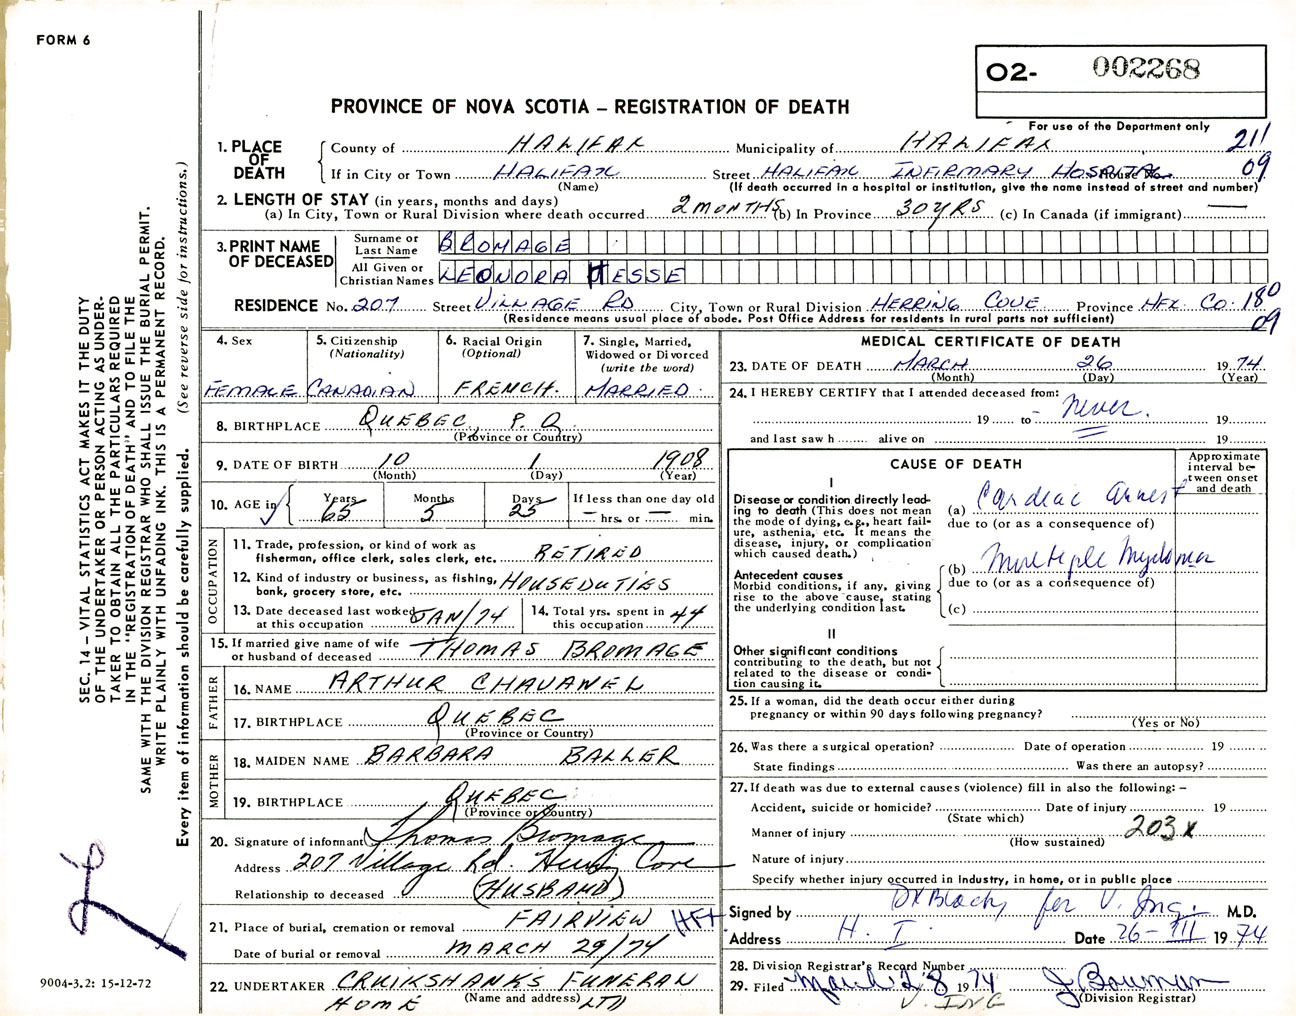 FORM 6
O2- 002268
PROVINCE OF NOVA SCOTIA – REGISTRATION OF DEATH
For use of the Department only
211
09
1. PLACE OF DEATH
County of HALIFAX Municipality of HALIFAX
If in City or Town HALIFAX Street HALIFAX INFIRMARY HOSPITAL
(Name) (If death occurred in a hospital or institution, give the name instead of street and number)
2. LENGTH OF STAY (in years, months and days)
(a) In City, Town or Rural Division where death occurred 2 MONTHS (b) In Province 30 YRS (c) In Canada (if immigrant) —
3. PRINT NAME OF DECEASED
Surname or Last Name BROMAGE
All Given or Christian Names LEONORA JESSE
RESIDENCE No. 207 Street VILLAGE RD City, Town or Rural Division HERRING COVE Province HFX. CO. 180
09
(Residence means usual place of abode. Post Office Address for residents in rural parts not sufficient)
4. Sex FEMALE
5. Citizenship (Nationality) CANADIAN
6. Racial Origin (Optional) FRENCH.
7. Single, Married, Widowed or Divorced (write the word) MARRIED
8. BIRTHPLACE QUEBEC P.Q.
(Province or Country)
9. DATE OF BIRTH 10 1 1908
(Month) (Day) (Year)
10. AGE in Years 65 Months 5 Days 25 If less than one day old — hrs. or — min.
OCCUPATION
11. Trade, profession, or kind of work as fisherman, office clerk, sales clerk, etc. RETIRED
12. Kind of industry or business, as fishing, bank, grocery store, etc. HOUSEDUTIES
13. Date deceased last worked at this occupation JAN/74
14. Total yrs. spent in this occupation 44
15. If married give name of wife or husband of deceased THOMAS BROMAGE
FATHER
16. NAME ARTHUR CHAVANEL
17. BIRTHPLACE QUEBEC
(Province or Country)
MOTHER
18. MAIDEN NAME BARBARA BALLER
19. BIRTHPLACE QUEBEC
(Province or Country)
20. Signature of informant Thomas Bromage
Address 207 Village Rd. Herring Cove
Relationship to deceased (HUSBAND)
21. Place of burial, cremation or removal FAIRVIEW HFX
Date of burial or removal MARCH 29/74
22. UNDERTAKER CRUIKSHANK'S FUNERAL HOME LTD
(Name and address)
MEDICAL CERTIFICATE OF DEATH
23. DATE OF DEATH MARCH 26 1974
(Month) (Day) (Year)
24. I HEREBY CERTIFY that I attended deceased from:
19 to – never. 19
and last saw h alive on 19
CAUSE OF DEATH
Approximate interval between onset and death
I
Disease or condition directly leading to death (This does not mean the mode of dying, e.g., heart failure, asthenia, etc. It means the disease, injury, or complication which caused death.)
(a) Cardiac arrest
due to (or as a consequence of)
Antecedent causes
Morbid conditions, if any, giving rise to the above cause, stating the underlying condition last.
(b) Multiple Myeloma
due to (or as a consequence of)
(c)
II
Other significant conditions
contributing to the death, but not related to the disease or condition causing it.
25. If a woman, did the death occur either during pregnancy or within 90 days following pregnancy?
(Yes or No)
26. Was there a surgical operation? Date of operation 19
State findings Was there an autopsy?
27. If death was due to external causes (violence) fill in also the following: –
Accident, suicide or homicide? Date of injury 19
(State which)
Manner of injury 203 x
(How sustained)
Nature of injury
Specify whether injury occurred in Industry, in home, or in public place
Signed by for V. Ing. M.D.
Address H. I. Date 26-III 1974
28. Division Registrar's Record Number
29. Filed March 28 1974 J Bowman
V. ING (Division Registrar)
SEC. 14 – VITAL STATISTICS ACT MAKES IT THE DUTY
OF THE UNDERTAKER OR PERSON ACTING AS UNDER-
TAKER TO OBTAIN ALL THE PARTICULARS REQUIRED
IN THE "REGISTRATION OF DEATH" AND TO FILE THE
SAME WITH THE DIVISION REGISTRAR WHO SHALL ISSUE THE BURIAL PERMIT.
WRITE PLAINLY WITH UNFADING INK. THIS IS A PERMANENT RECORD.
Every item of information should be carefully supplied. (See reverse side for instructions.)
9004-3.2: 15-12-72